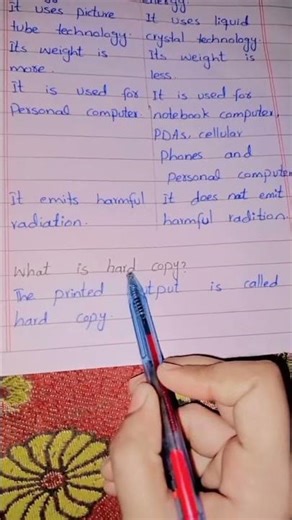 energy
It uses picture
tube technology.
Its weight is
more.
It is used for
Personal computer.
It emits harmful
radiation.
It uses liquid
crystal technology.
Its weight is
less.
It is used for
notebook computer,
PDAs, cellular
Phones and
Personal computer
It does not emit
harmful radition.
What is hard copy?
The printed output is called
hard copy.